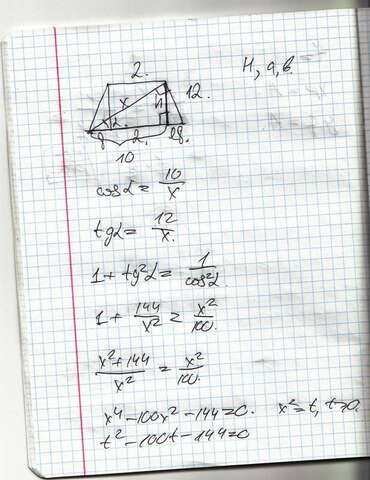 2.
H, a, b.
x
h
12.
α.
8
2,
8.
10
cosα = 10/x
tgα = 12/x.
1 + tg²α = 1/cos²α.
1 + 144/x² = x²/100.
(x²+144)/x² = x²/100.
x⁴ - 100x² - 144 = 0. x² = t, t>0.
t² - 100t - 144 = 0